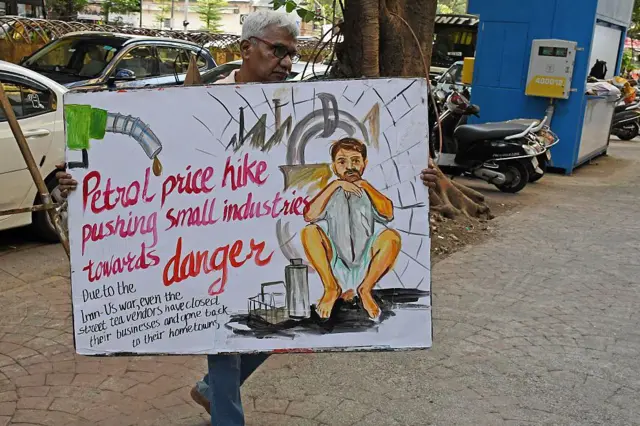 Petrol price hike
pushing small industries
towards danger
Due to the
Iran-Us war, even the
street tea vendors have closed
their businesses and gone back
to their hometowns